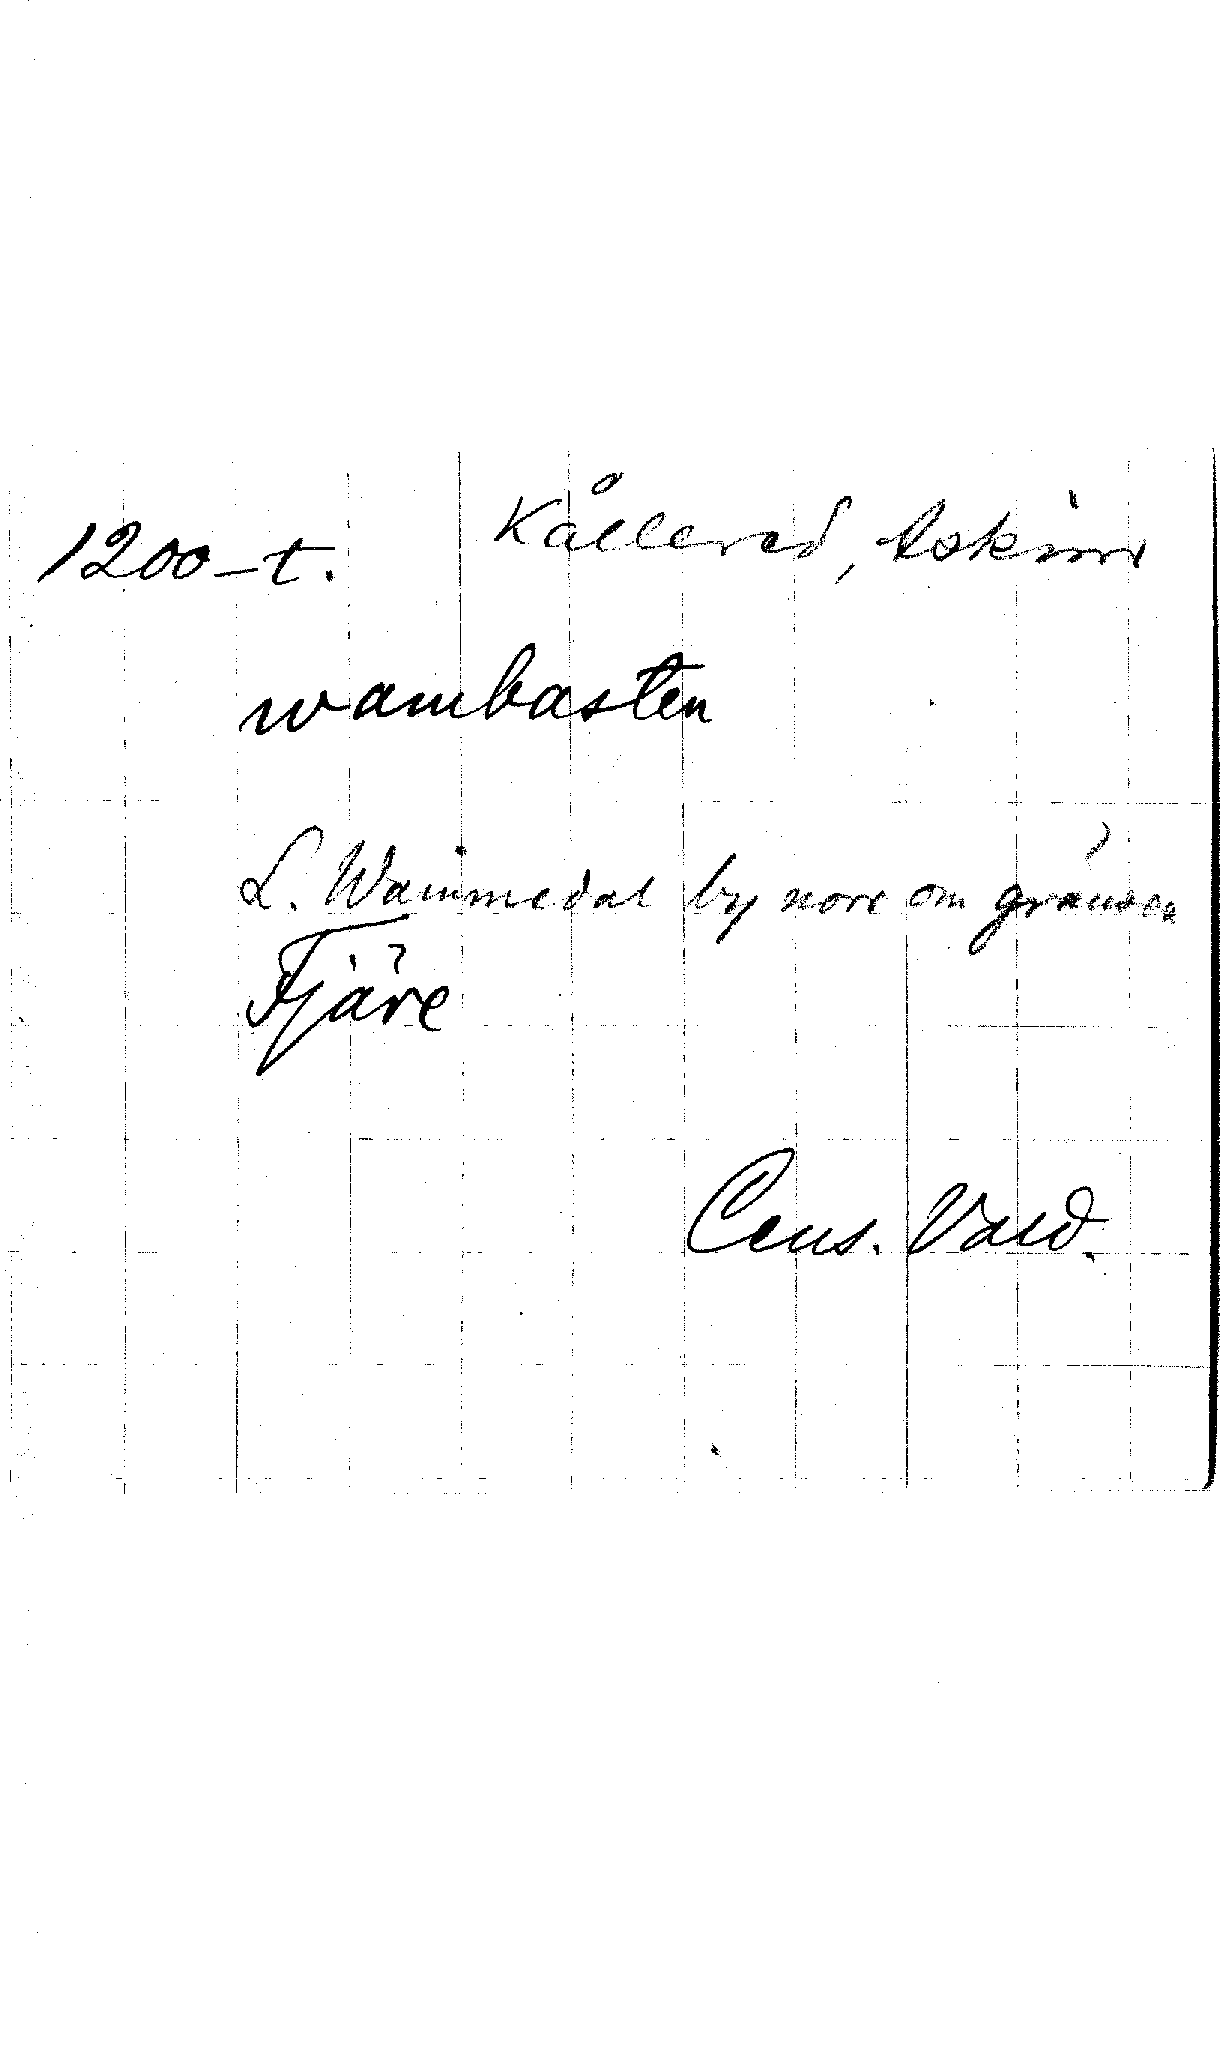 1200-t.
Kållered, Askim
wambasten
L. Wammedal by norr om gränsen
Fjäre
Cens. Vald.